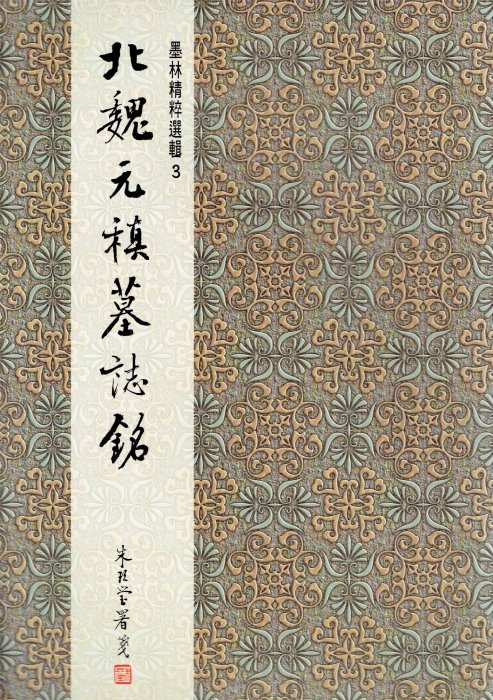 墨林精粹選輯 3
北魏元稹墓誌銘
朱玖瑩署箋